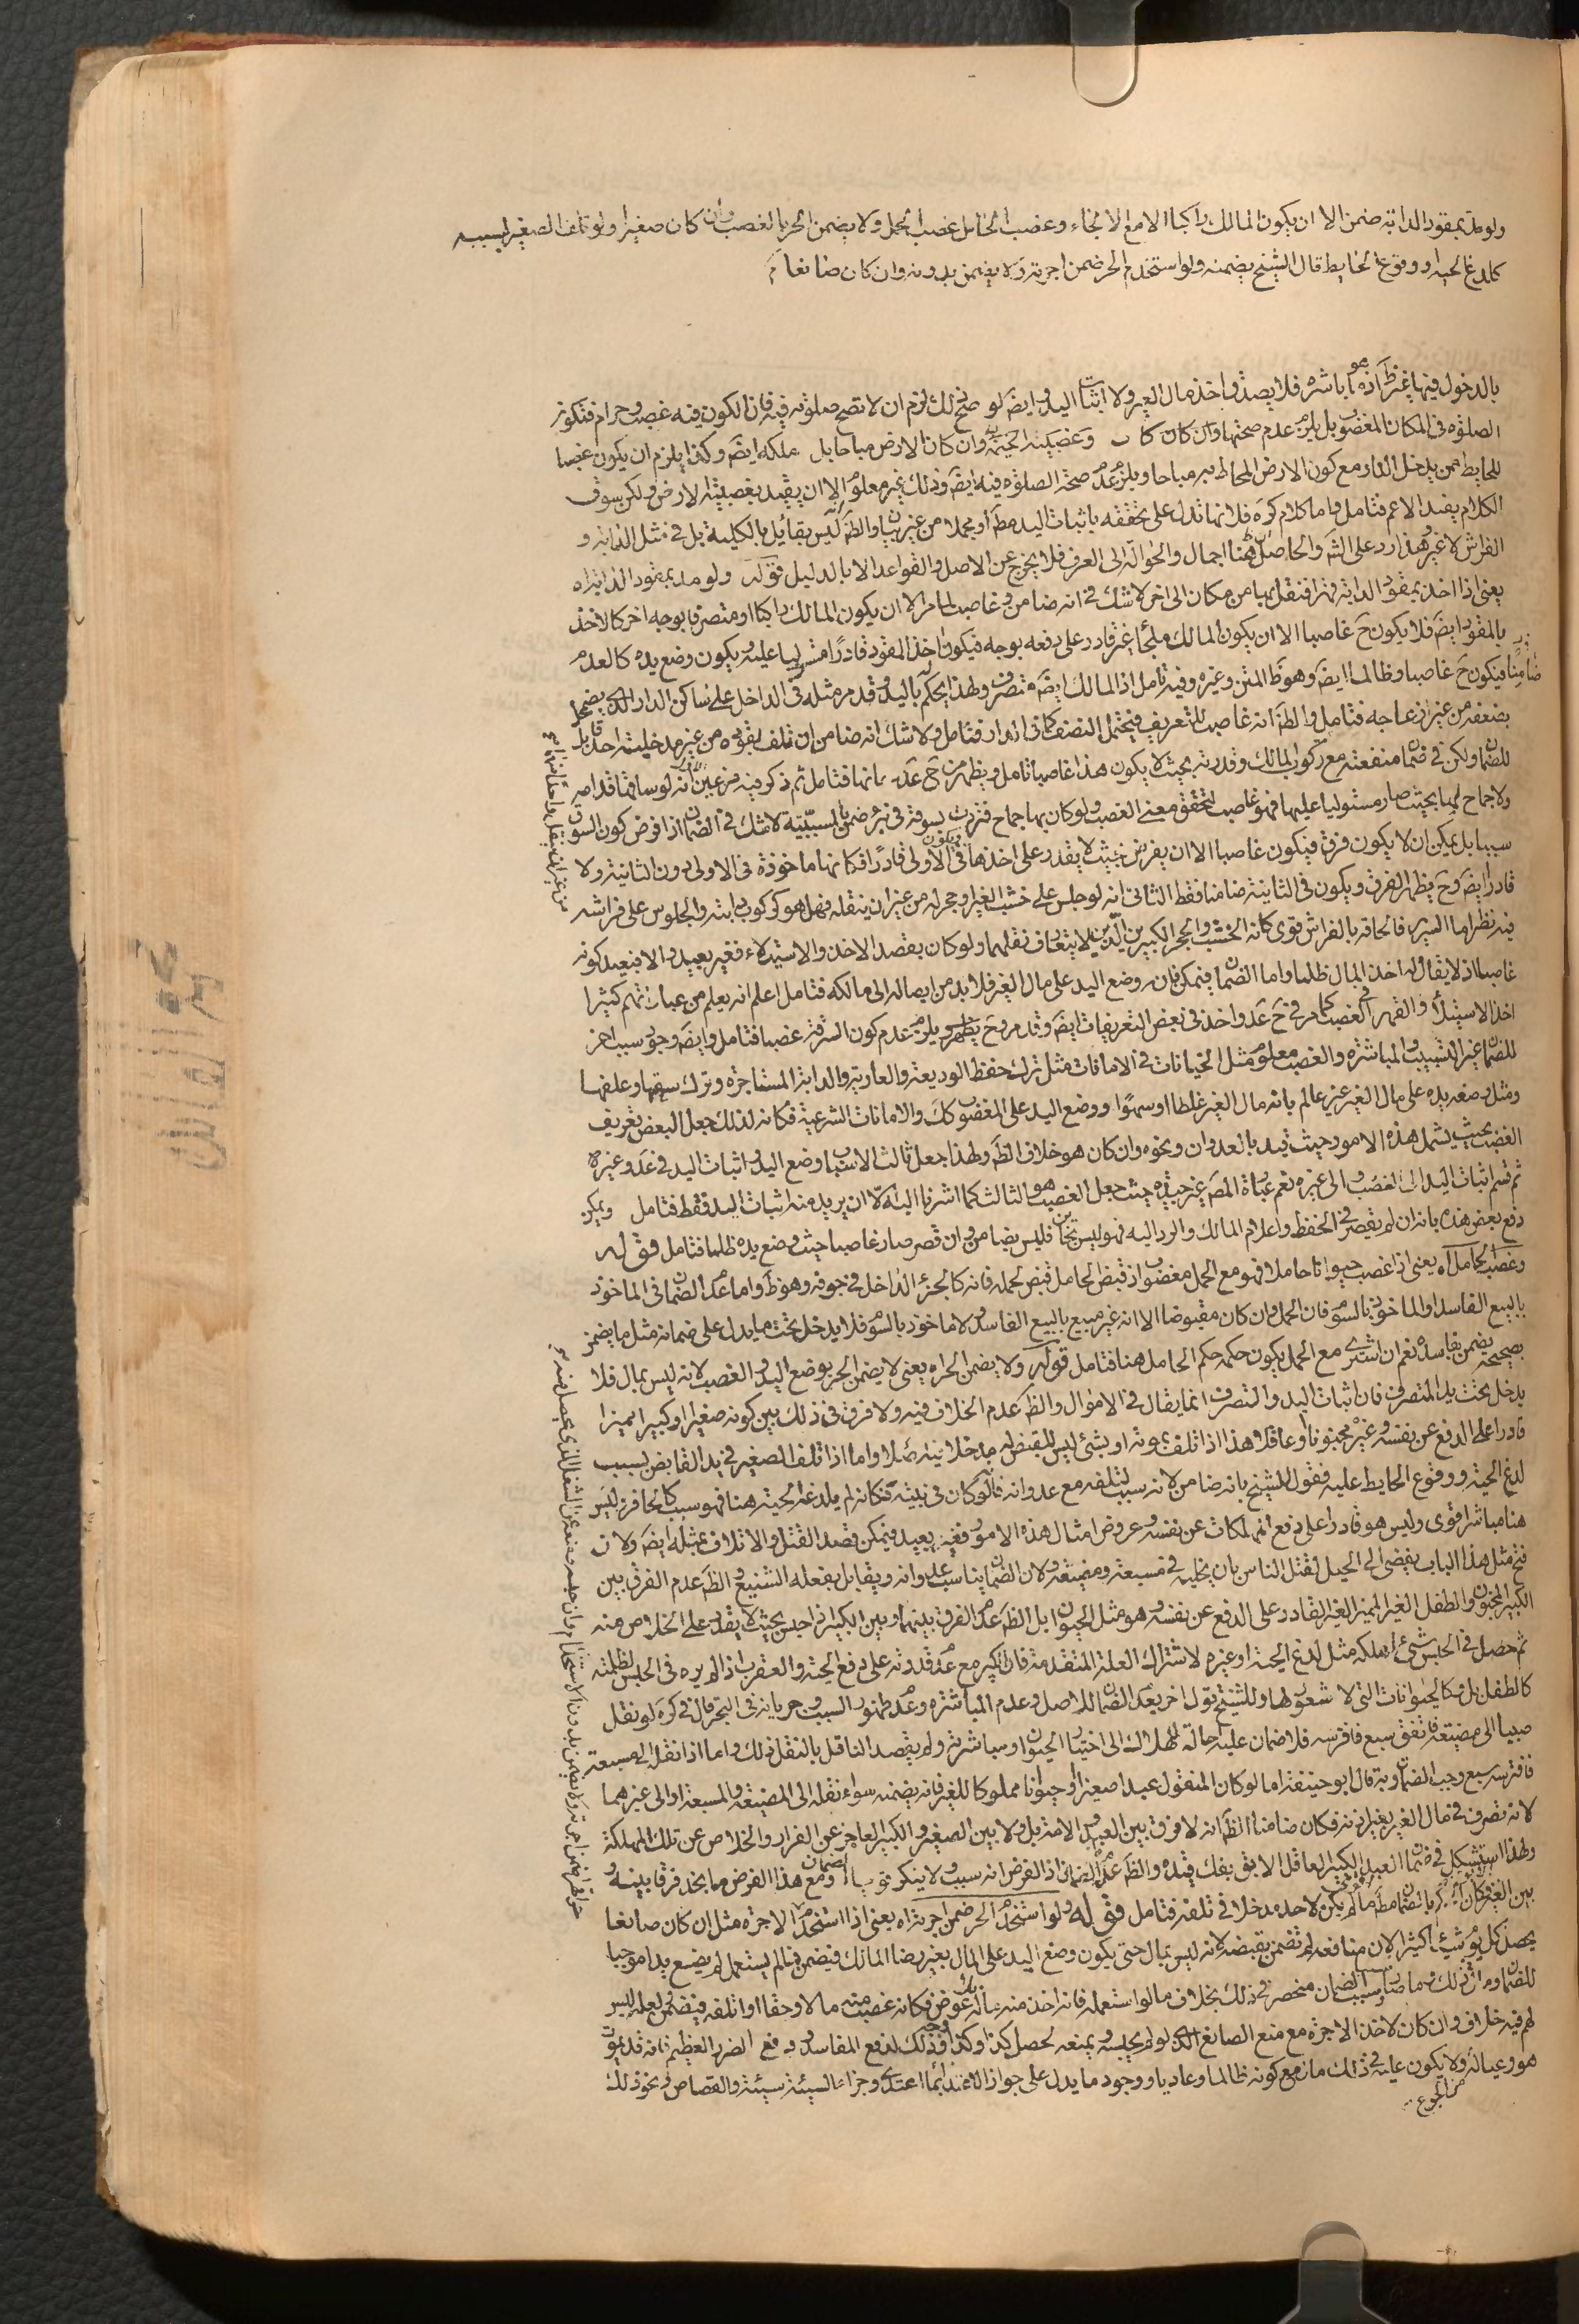 ولو مد بمقود الدابة ضمن الا ان يكون المالك راكبا الا مع الالجاء وغصب الحامل غصب الحمل ولا يضمن الحر بالغصب وان كان صغيرا ولو تلف الصغير بسبب
كلدغ الحية او وقوع الحايط قال الشيخ يضمنه ولو استخدم الحر ضمن اجرته ولا يضمن بدونه وان كان صانعا
بالدخول فيها باشره فلا يصدق اخذ مال الغير ولا اثبات اليد وايضَ لو صح ذلك لزم ان لا تصح صلوته فيه فان الكون فيه غصب وحرام فتكون
الصلوة في المكان المغصوب بل يلزم عدم صحتها وان كان الارض مباحا بل ملكه ايضَ وكذا يلزم ان يكون غصبا
للحايط ممن يدخل الدار مع كون الارض المحاط به مباحا ويلزم عدم صحة الصلوة فيه ايضَ وذلك غير معلوم الا ان يقيد بغصبيته الارض ولكن سوق
الكلام يفيد الاعم فتامل واما كلام كره فلا نها تدل على تحققه باثبات اليد مطَ او مجملا من غير بيان والظَ ليس بقائل بالكلية بل في مثل الدابة و
الفراش لا غير وهذا يرد على الشَ والحاصل ان هنا اجمال والحوالة الى العرف فلا يخرج عن الاصل والقواعد الا بالدليل قوله ولو مد بمقود الدابة اه
يعني اذا اخذ بمقود الدابة قهرا فنقل بها من مكان الى اخر لا شك في انه ضامن وغاصب لما مر الا ان يكون المالك راكبا او متصرفا بوجه اخر كالاخذ
بالمقود ايضَ فلا يكون حَ غاصبا الا ان يكون المالك ملجأ غير قادر على دفعه بوجه فيكون اخذ المقود قادرا مستوليا عليه ويكون وضع يده كالعدم
فيكون حَ غاصبا وظالما ايضَ وهو ظَ المتن وغيره وفيه تامل اذ المالك ايضَ متصرف ولهذا يحكم له باليد وقد مر مثله في الداخل على ساكن الدار الذي يضمحل
بضعفه من غير ازعاجه فتامل والظَ انه غاصب للتعريف فيحتمل النصف كما في الدار فتامل ولا شك انه ضامن ان تلف بقوده من غير مدخلية احد قابل
للضمان ولكن في ضمان منفعته مع ركوب المالك وقدرته بحيث لا يكون هذا غاصبا تامل ويظهر من حَ عدَ ضمانها فتامل ثم ذكر فيه فرعين انه لو ساقها قدامه
ولا جماح لها بحيث صار مستوليا عليها فهو غاصب لتحقق معنى الغصب ولو كان بها جماح فتردت بسوقه في بئر ضمن بالسببية لا شك في الضمان اذا فرض كون السوق
سببا بل يمكن ان لا يكون فرق فيكون غاصبا الا ان يفرض بحيث لا يقدر على اخذها في الاولى قادرا فكانها ماخوذة في الاولى دون الثانية ولا
قادرا ايضَ وحَ يظهر الفرق ويكون في الثانية ضامنا فقط الثاني انه لو جلس على خشب الغير وحجر له من غير ان ينقله فهل هو كركوب دابته والجلوس على فراشه
فيه نظر اما السرير فالحاقه بالفراش قوى كانه الخشب والحجر الكبيرين الذين لا يتعارف نقلهما ولو كان بقصد الاخذ والاستيلاء فغير بعيد والا فبعيد كونه
غاصبا اذ لا يقال له اخذ المال ظلما واما الضمان فيمكن فانه وضع اليد على مال الغير فلا بد من ايصاله الى مالكه فتامل اعلم انه يعلم من عباراتهم كثيرا
اخذ الاستيلاء والقهر في الغصب كما مر في حَ عدَ واخذ في بعض التعريفات ايضَ وقد مر وحَ يظهر ويلزم عدم كون السرقة غصبا فتامل وايضَ وجود سبب اخر
للضمان غير التسبيب والمباشرة والغصب معلوم مثل الخيانات في الامانات مثل ترك حفظ الوديعة والعارية والدابة المستاجرة وترك سقيها وعلفها
ومثل وضعه يده على مال الغير غير عالم بانه مال الغير غلطا او سهوا ووضع اليد على المغصوب كك والامانات الشرعية فكانه لذلك جعل البعض تعريف
الغصب بحيث يشمل هذه الامور حيث قيد بالعدوان ونحوه وان كان هو خلاف الظَ ولهذا جعل ثالث الاسباب وضع اليد واثبات اليد في عدَ وغيره
ثم قسم اثبات اليد الى الغصب والى غيره نعم عبارة المصَ غير جيده حيث جعل الغصب هو الثالث كما اشرنا اليه الا ان يريد منه اثبات اليد فقط فتامل ويمكن
دفع بعض هذه بانه ان لم يقصر في الحفظ واعلام المالك والرد اليه فهو ليس بخائن فليس بضامن وان قصر صار غاصبا حيث وضع يده ظلما فتامل قوله
وغصب الحامل اه يعني اذا غصب حيوانا حاملا فهو مع الحمل مغصوب اذ قبض الحامل قبض لحمله فانه كالجزء الداخل في جوفه وهو ظَ واما عدم الضمان في الماخوذ
بالبيع الفاسد او الماخوذ بالسوم فان الحمل وان كان مقبوضا الا انه غير مبيع بالبيع الفاسد ولا ماخوذ بالسوم فلا يدخل تحت ما يدل على ضمانه مثل ما يضمن
بصحيحه يضمن بفاسده نعم ان اشترى مع الحمل يكون حكمه حكم الحامل هنا فتامل قوله ولا يضمن الحر اه يعني لا يضمن الحر بوضع اليد والغصب لانه ليس بمال فلا
يدخل تحت يد المتصرف فان اثبات اليد والتصرف انما يقال في الاموال والظَ عدم الخلاف فيه ولا فرق في ذلك بين كونه صغيرا او كبيرا مميزا
قادرا على الدفع عن نفسه وغيره مجنونا او عاقلا وهذا اذا تلف بموته او بشئ ليس للقبض له مدخلا فيه اصلا واما اذا تلف الصغير في يد القابض بسبب
لدغ الحية ووقوع الحايط عليه فقول للشيخ بانه ضامن لانه سبب لتلفه مع عدوانه فانه لو كان في بيته لكانه لم يلدغه الحية هنا فهو سبب كالحافر اذ ليس
هنا مباشر اقوى وليس هو قادرا على دفع المهلكات عن نفسه وعروض امثال هذه الامور فغير بعيد فيمكن قصد القتل والاتلاف بمثله ايضَ ولان
فتح مثل هذا الباب يفضى الى الحيل لقتل الناس بان يخليه في مسبعة ومضيعة ولان الضمان يناسب عدوانه ويقابل بفعله الشنيع والظَ عدم الفرق بين
الكبير المجنون والطفل الغير المميز الغير القادر على الدفع عن نفسه وهو مثل الحيوان بل الظَ عدم الفرق بينهما وبين الكبير اذا حبس بحيث لا يقدر على الخلاص منه
ثم حصل في الحبس شئ اهلكه مثل لدغ الحية او غيره لاشتراك العلة المتقدمة فان الكبير مع عدم قدرته على دفع الحية والعقرب اذا لم يره في الحبس لظلمته
كالطفل بل وكالحيوانات التي لا شعور لها وللشيخ قول اخر بعدم الضمان للاصل وعدم المباشرة وعدم ظهور السبب وجريانه في التحرير قال في كره لو نقل
صبيا الى مضيعة فاتفق سبع فافترسه فلا ضمان عليه احالة للهلاك الى اختيار الحيوان ومباشرته ولم يقصد الناقل بالنقل ذلك واما اذا نقله الى مسبعة
فافترسه سبع وجب الضمان وبه قال ابو حنيفة اما لو كان المنقول عبدا صغيرا او حيوانا مملوكا للغير فانه يضمنه سواء نقله الى المضيعة والمسبعة او الى غيرهما
لانه تصرف في مال الغير بغير اذنه فكان ضامنا الظَ انه لا فرق بين العبد والامة بل ولا بين الصغير والكبير العاجز عن الفرار والخلاص عن تلك المهلكة
ولهذا استشكل في ضمان العبد الكبير العاقل الابق بفك قيده والظَ عدم الضمان اذ الفرض انه سبب ولا ينكر ومع هذا الفرض ما نجد فرقا بينه و
بين مطَ ما لم يكن لاحد مدخلا في تلفه فتامل قوله ولو استخدم الحر ضمن اجرته اه يعني اذا استخدم الا اجره مثل ان كان صانعا
يحصل كل يوم شيئا كثيرا لان منافعه لم تضمن بقبضه لانه ليس بمال حتى يكون وضع اليد على المال بغير رضا المالك فيضمن فما لم يستعمل لم يضع يدا موجبا
للضمان وسبب الضمان منحصر في ذلك بخلاف ما لو استعمله فانه اخذ منه ماله عوض فكانه غصب منه مالا وحقا او اتلفه فيضمن لعله ليس
لهم فيه خلاف وان كان لاخذ الاجرة مع منع الصانع الذي لو لم يحبسه ويمنعه لحصل كذا وكذا وذلك لدفع المفاسد ودفع الضرر العظيم فانه قد يموت
هو وعياله ولا يكون عليه في ذلك مانع مع كونه ظالما وعاديا ووجود ما يدل على جواز الاعتداء بما اعتدى وجزاء السيئة سيئة والقصاص ونحو ذلك
من الجوع